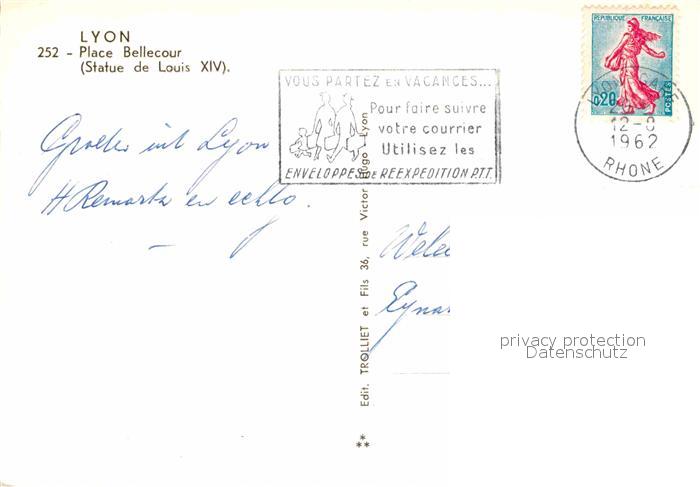 LYON
252 - Place Bellecour
(Statue de Louis XIV).
VOUS PARTEZ EN VACANCES...
Pour faire suivre
votre courrier
Utilisez les
ENVELOPPES DE RÉEXPEDITION P.T.T.
REPUBLIQUE FRANÇAISE
0,20
POSTES
LYON GARE
12-8
1962
RHONE
Groeten uit Lyon
H Remarta en echtg.
Edit. TROLLIET et Fils 36, rue Victor Hugo - Lyon
Eyna
privacy protection
Datenschutz